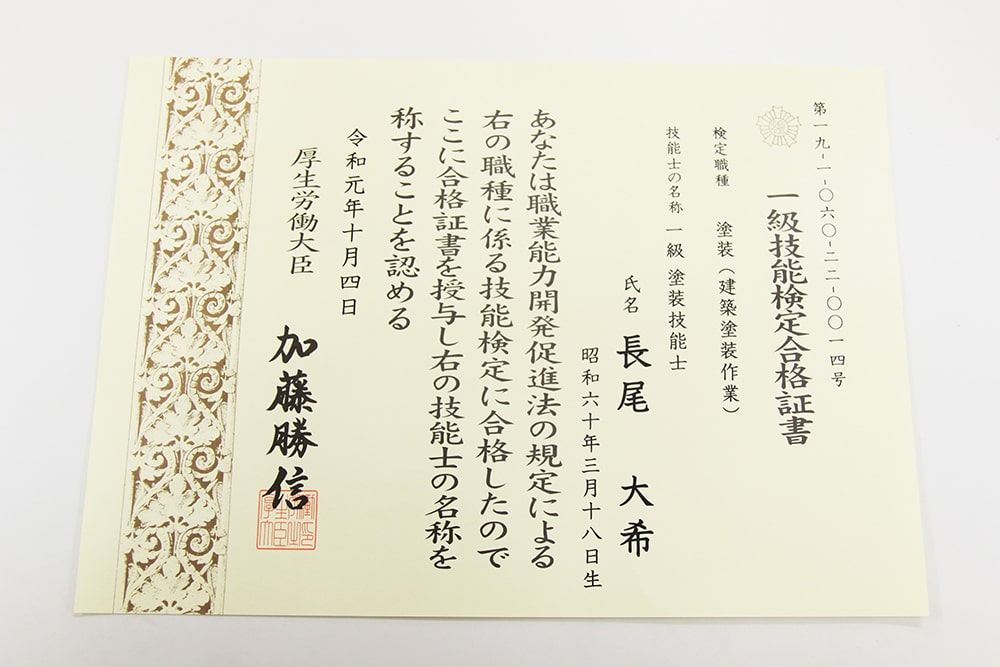 第一九-一-〇六〇-二二-〇〇一四号
一級技能検定合格証書
検定職種 塗装(建築塗装作業)
技能士の名称 一級 塗装技能士
氏名 長尾 大希
昭和六十年三月十八日生
あなたは職業能力開発促進法の規定による
右の職種に係る技能検定に合格したので
ここに合格証書を授与し右の技能士の名称を
称することを認める
令和元年十月四日
厚生労働大臣 加藤勝信